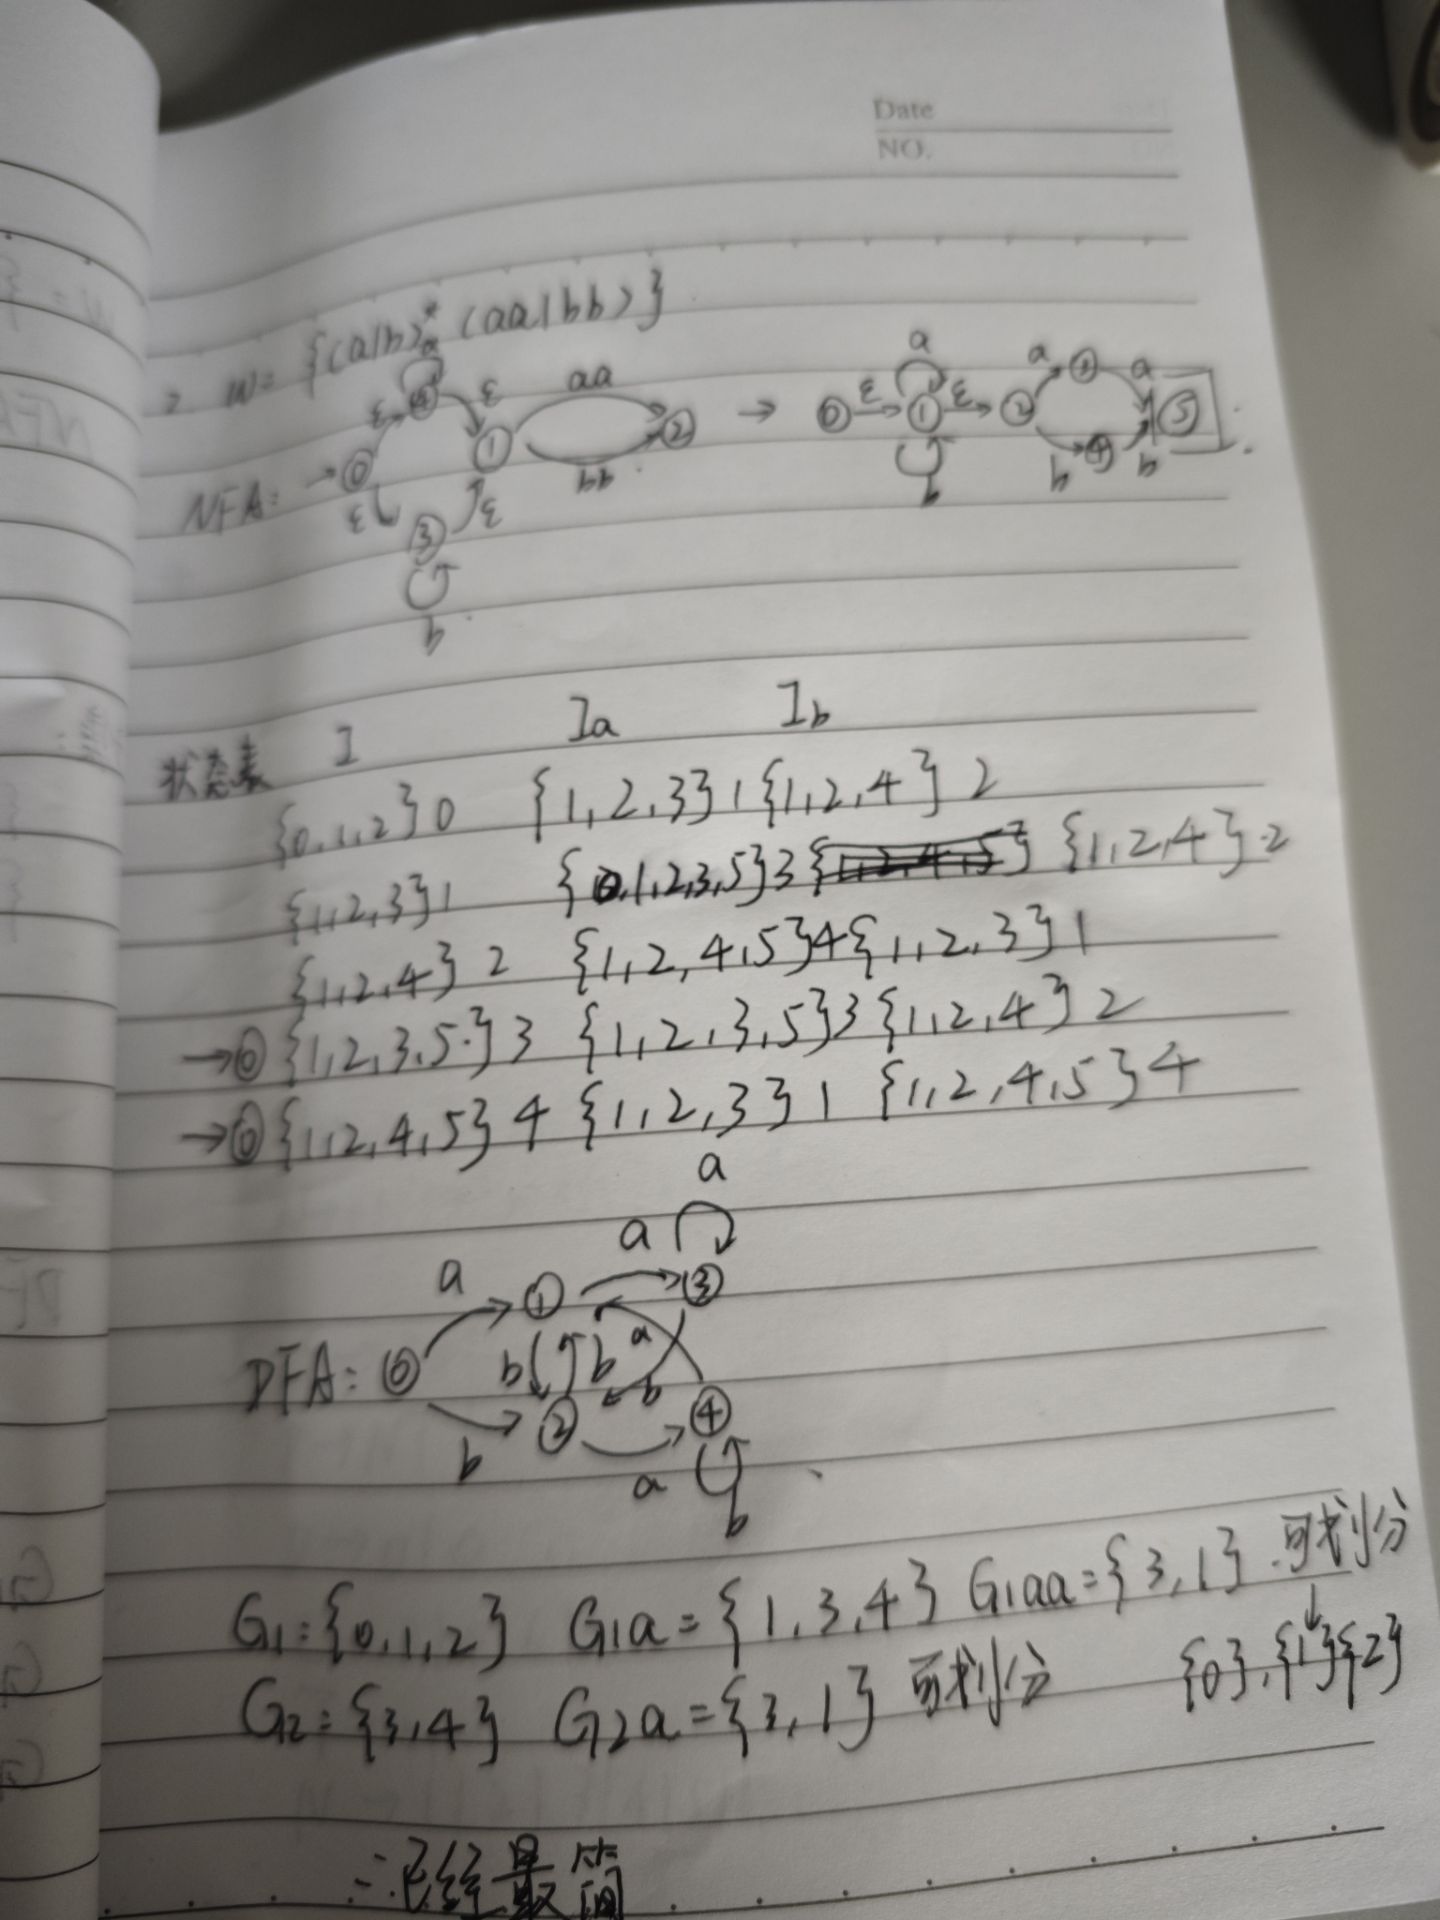 Date
NO.
W = {(a|b)* (aa|bb)}
NFA: → 0 ε a ε 1 aa bb 2 ε 3 ε b → 0 ε 1 a b ε 2 a 3 a b 4 b 5
状态表 I Ia Ib
{0,1,2} 0 {1,2,3} 1 {1,2,4} 2
{1,2,3} 1 {0,1,2,3,5} 3 {1,2,4} 2
{1,2,4} 2 {1,2,4,5} 4 {1,2,3} 1
→ {1,2,3,5} 3 {1,2,3,5} 3 {1,2,4} 2
→ {1,2,4,5} 4 {1,2,3} 1 {1,2,4,5} 4
a
a a
1 3
DFA: 0 b b a b
b 2 a 4
b
G1={0,1,2} G1a={1,3,4} G1aa={3,1} 可划分
↓
G2={3,4} G2a={3,1} 可划分 {0},{1}{2}
∴已经最简